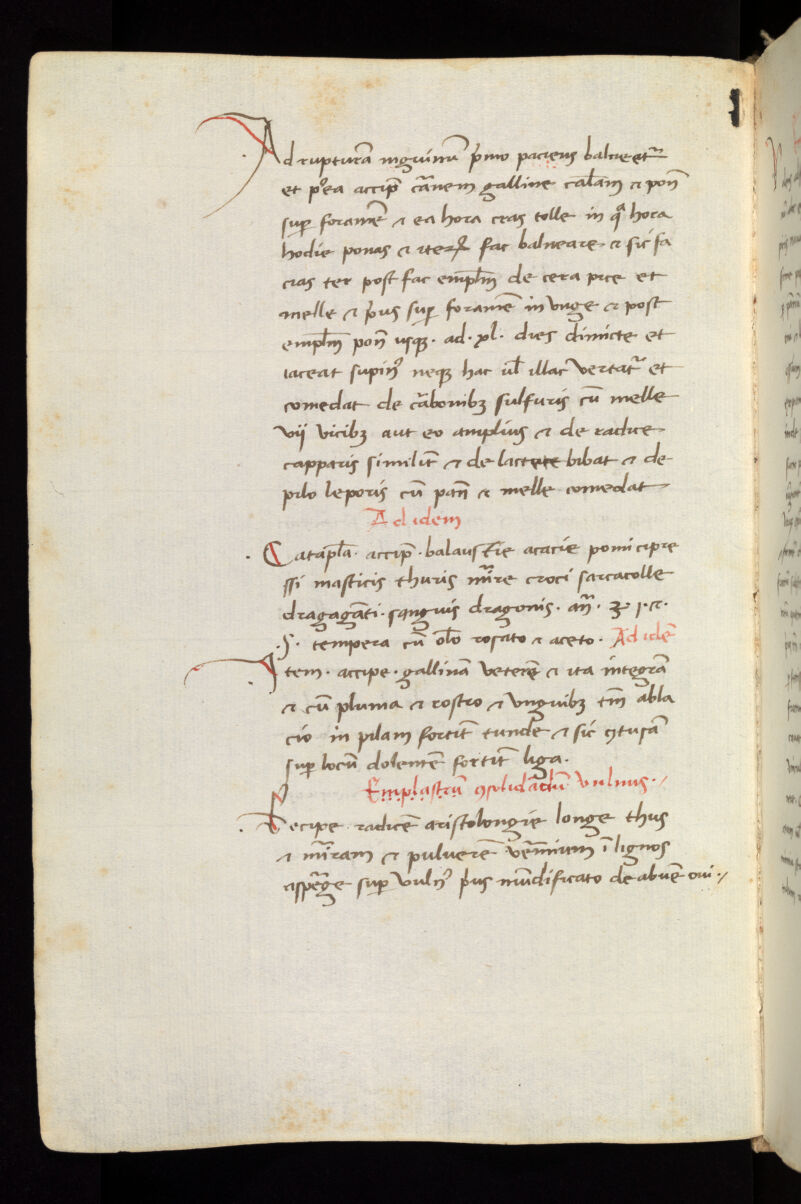 Ad rupturā inguinū p̄mo paciens balneetᷣ
et pꝰea accip̄ cᷓnem galline calᷓam ⁊ pon̄
sup̱ foramē ⁊ ea hora cras tolle in qᷓ hora
hodie ponas ⁊ iterꝝ fac balneare ⁊ sic fa
cias ter post fac emplᷓm de cera pice et
melle ⁊ p̄us sup̱ foramē in unge ⁊ post
emplᷓm pon̄ usqꝫ · ad · xl · dies dimicte et
iaceat supinꝰ neqꝫ hac ul̄ illac vertatᷣ et
comedat de cᷓbonibꝫ sulfuris cū melle
vij vicibꝫ aut eo amplius ⁊ de radice
capparis similit̄ ⁊ de lacte bibat ⁊ de
pilo leporis cū pan̄ ⁊ melle comedat
Ad idem
Catapl̄a · accip̄ · balaustie acacie pomi cipre
ssi masticis thuris mirre croci sarcacolle
dragagāti · sanguis dragonis · an̄ · ʒ · j · ⁊ ·
· ʃ · tempera cū ol̄o rosato ⁊ aceto · Ad idē
Item · accipe · gallinā veterē ⁊ ita integrā
⁊ cū pluma ⁊ rostro ⁊ unguibꝫ tm̄ abla
cio in pilam fortit̄ tunde ⁊ sic ꝯtusā
sup̱ locū dolentē fortit̄ liga ·
Emplastrū ꝯsolidādū vulnus ·/
Recipe radicē aristolongie longe thus
⁊ mirram ⁊ pulverē vᷓmium ī lignos
aspᷓge sup̱ vulnꝰ p̄us mūdificato de abuē oui ·/